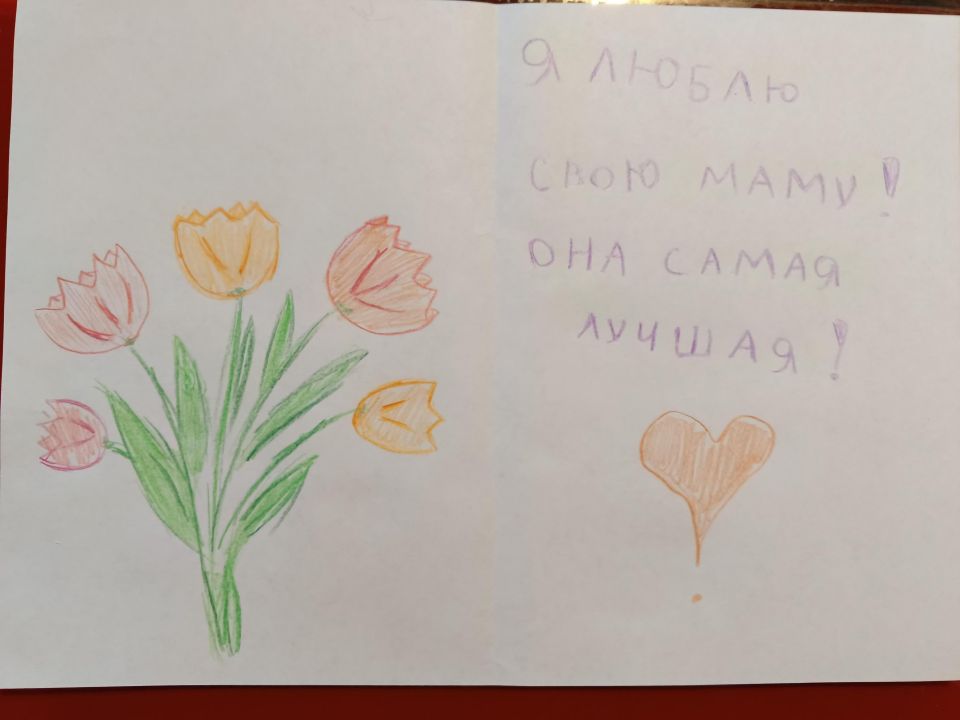 Я ЛЮБЛЮ
СВОЮ МАМУ!
ОНА САМАЯ
ЛУЧШАЯ!